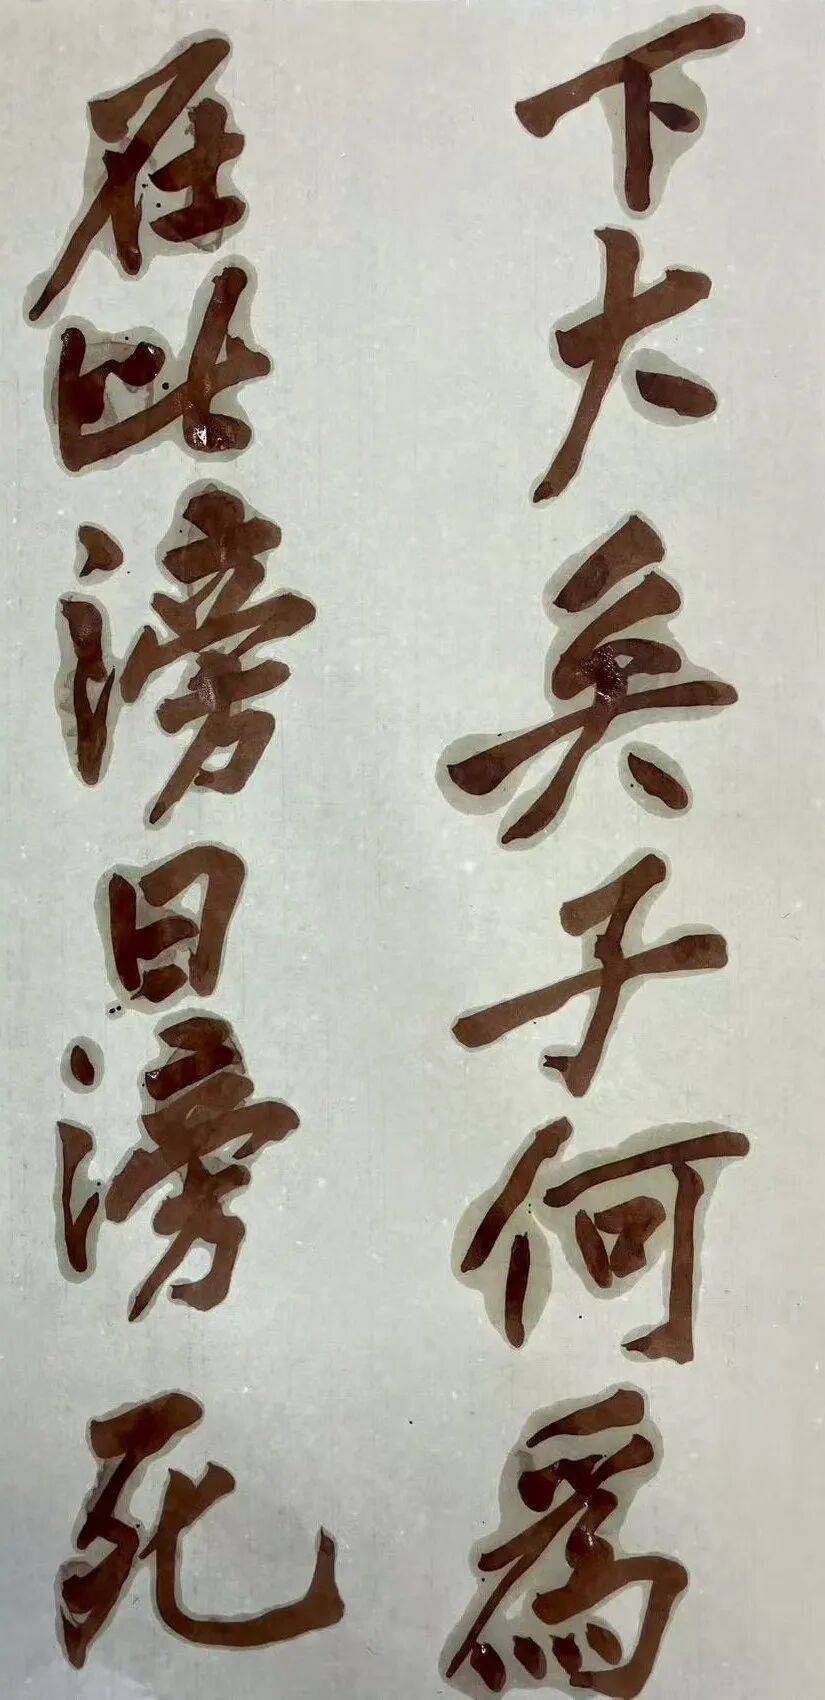 下大矣子何為
在此滂曰滂死